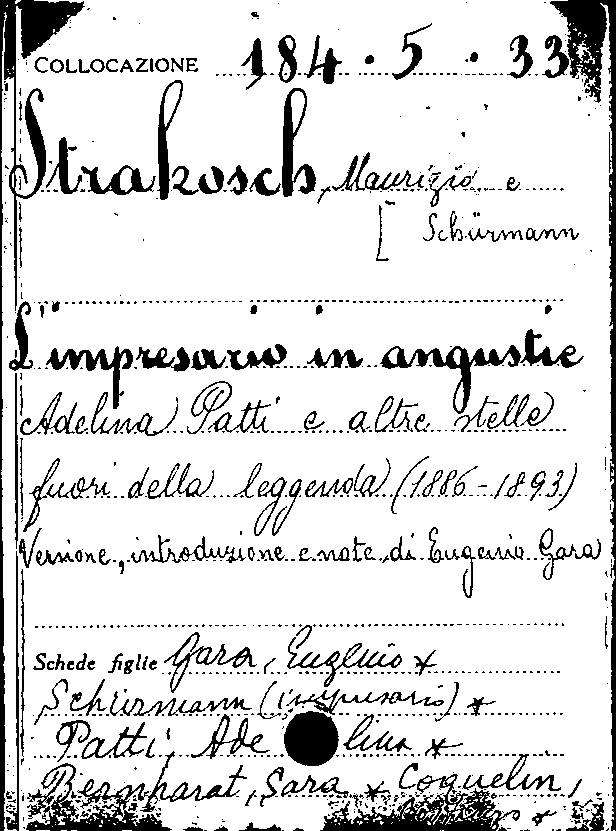 COLLOCAZIONE 184.5.33
Strakosch, Maurizio e
[ Schürmann
L'impresario in angustie
Adelina Patti e altre stelle
fuori della leggenda (1886-1893)
Versione, introduzione e note di Eugenio Gara
Schede figlie Gara, Eugenio *
Schürmann (impresario) *
Patti, Adelina *
Bernharat, Sara * Coquelin,